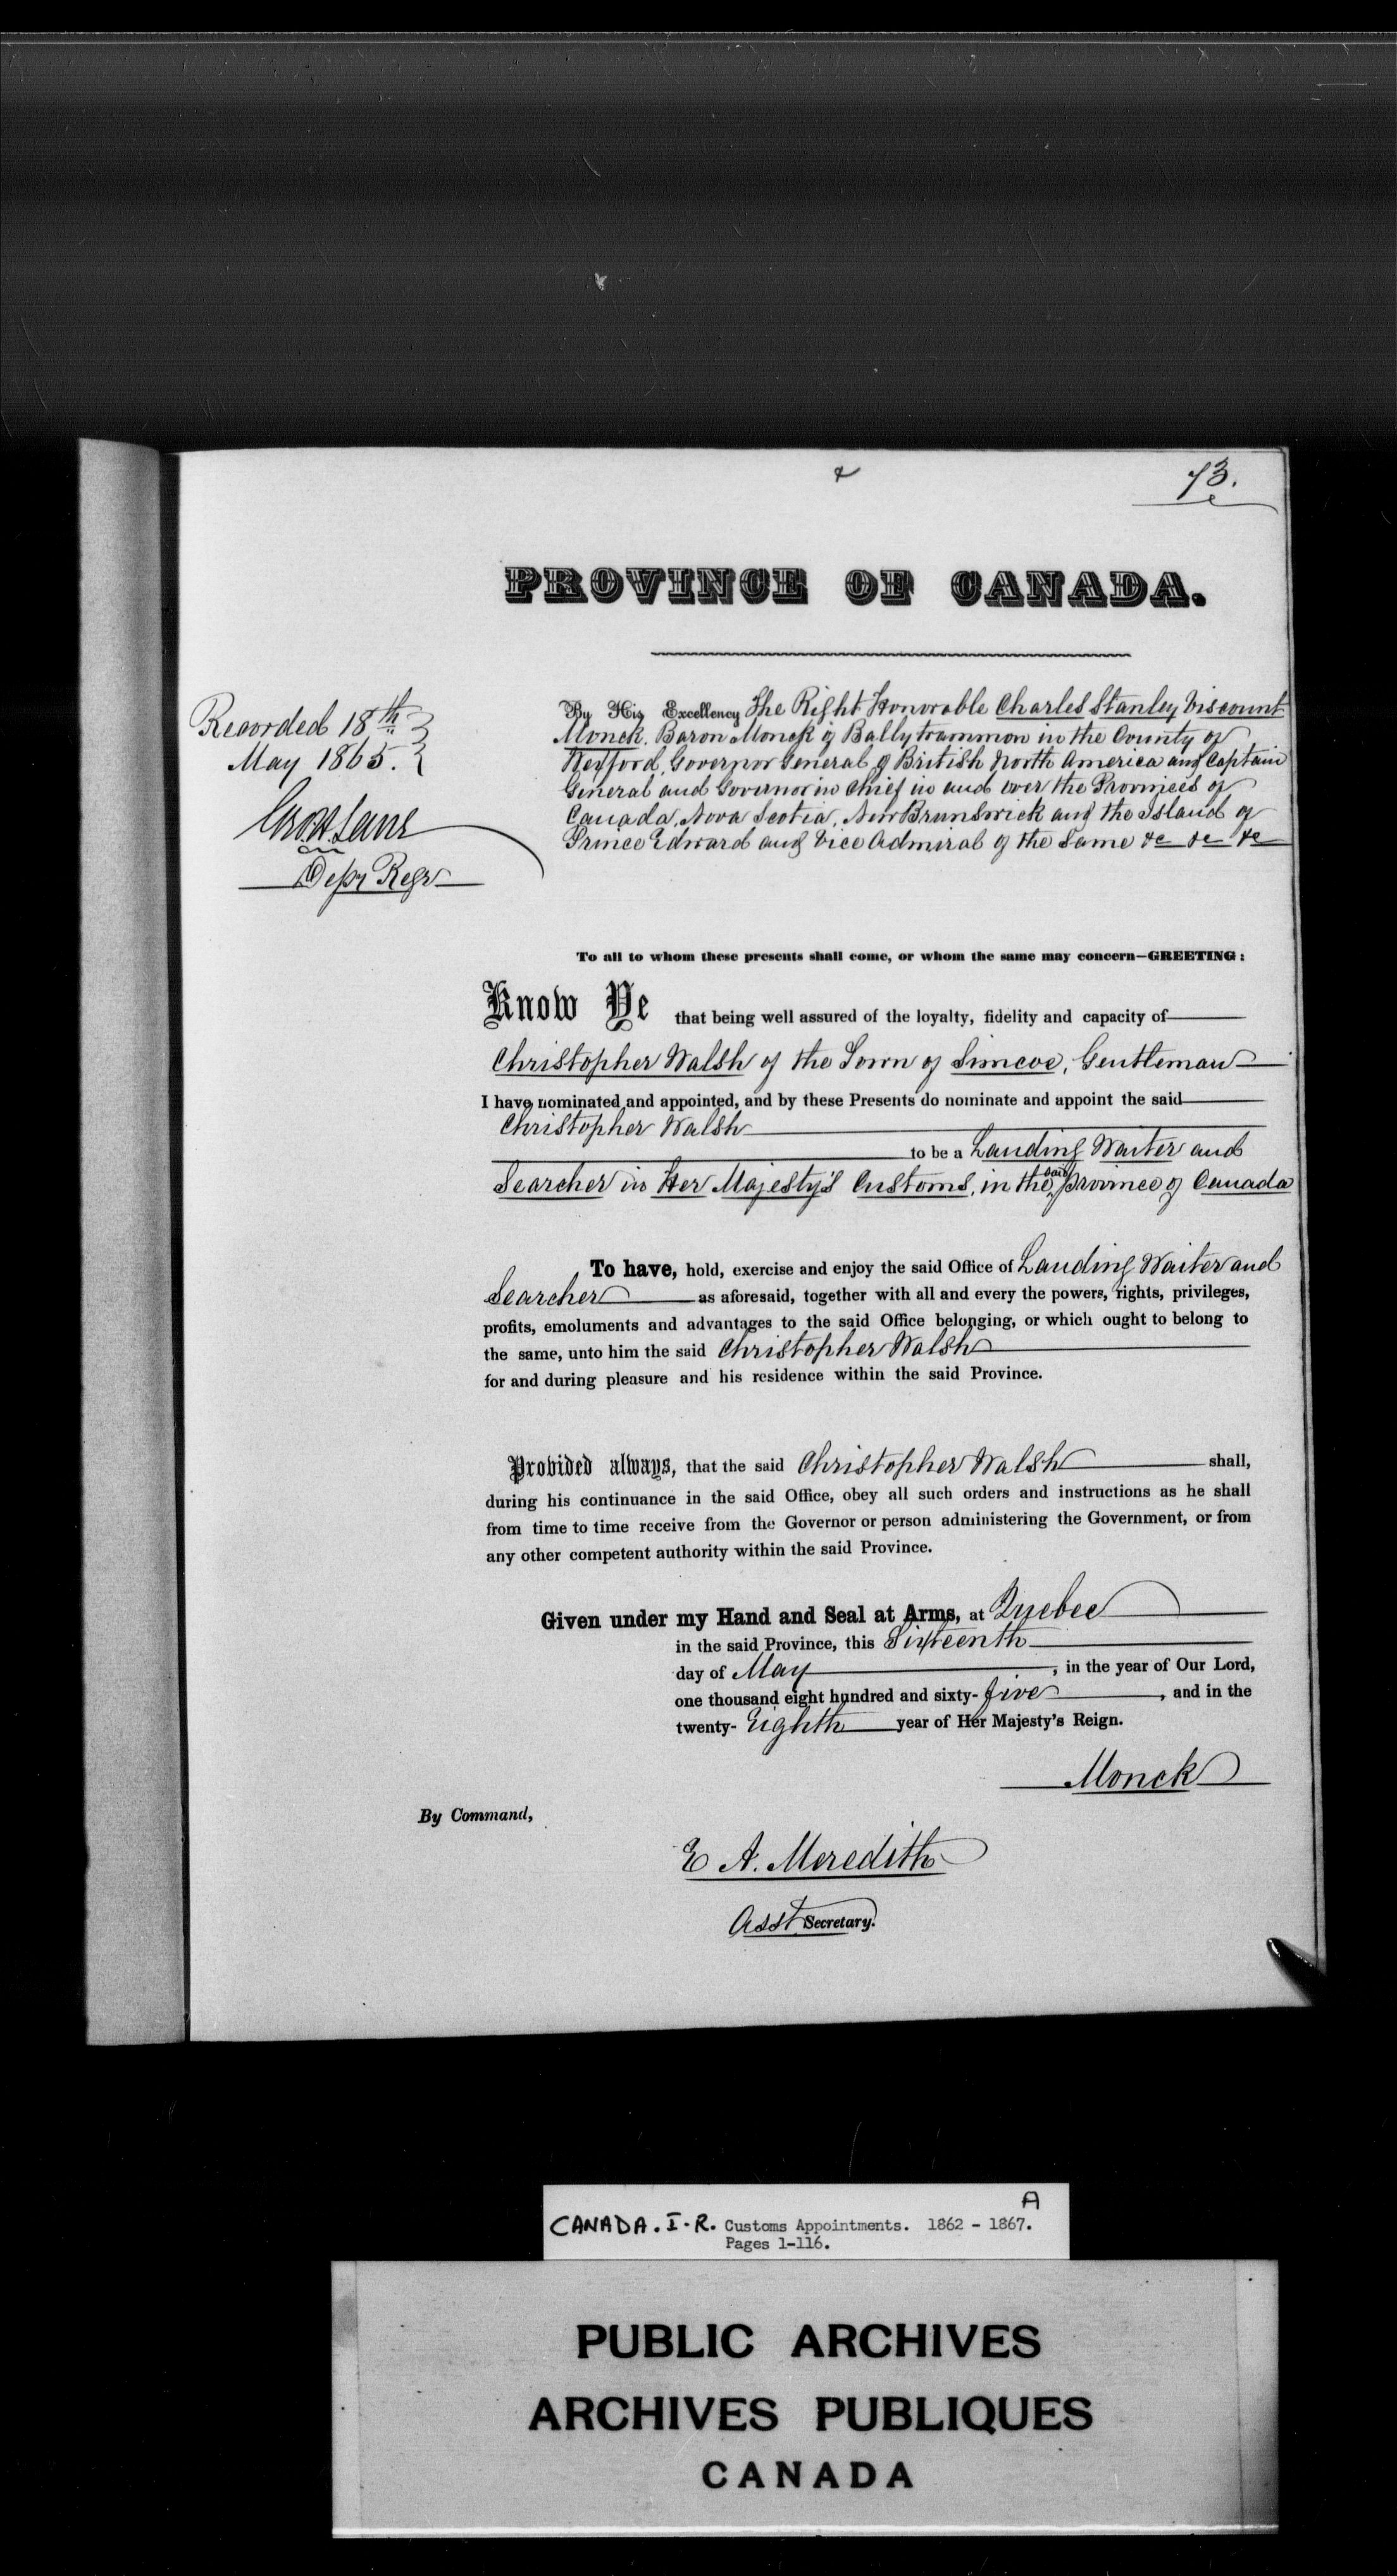 73.
PROVINCE OF CANADA.
Recorded 18th
May 1865.
Lane
Depy Regr
By His Excellency The Right Honorable Charles Stanley Viscount
Monck. Baron Monck of Ballytrammon in the County of
Wexford, Governor General of British North America and Captain
General and Governor in Chief in and over the Provinces of
Canada, Nova Scotia, New Brunswick and the Island of
Prince Edward and Vice Admiral of the Same &c &c &c
To all to whom these presents shall come, or whom the same may concern—GREETING:
Know Ye that being well assured of the loyalty, fidelity and capacity of
Christopher Walsh of the Town of Simcoe, Gentleman
I have nominated and appointed, and by these Presents do nominate and appoint the said
Christopher Walsh
to be a Landing Waiter and
Searcher in Her Majesty's Customs, in the said province of Canada
To have, hold, exercise and enjoy the said Office of Landing Waiter and
Searcher as aforesaid, together with all and every the powers, rights, privileges,
profits, emoluments and advantages to the said Office belonging, or which ought to belong to
the same, unto him the said Christopher Walsh
for and during pleasure and his residence within the said Province.
Provided always, that the said Christopher Walsh shall,
during his continuance in the said Office, obey all such orders and instructions as he shall
from time to time receive from the Governor or person administering the Government, or from
any other competent authority within the said Province.
Given under my Hand and Seal at Arms, at Quebec
in the said Province, this Sixteenth
day of May, in the year of Our Lord,
one thousand eight hundred and sixty-five, and in the
twenty-Eighth year of Her Majesty's Reign.
Monck
By Command,
E A. Meredith
Asst Secretary.
A
CANADA. I-R. Customs Appointments. 1862 - 1867.
Pages 1-116.
PUBLIC ARCHIVES
ARCHIVES PUBLIQUES
CANADA